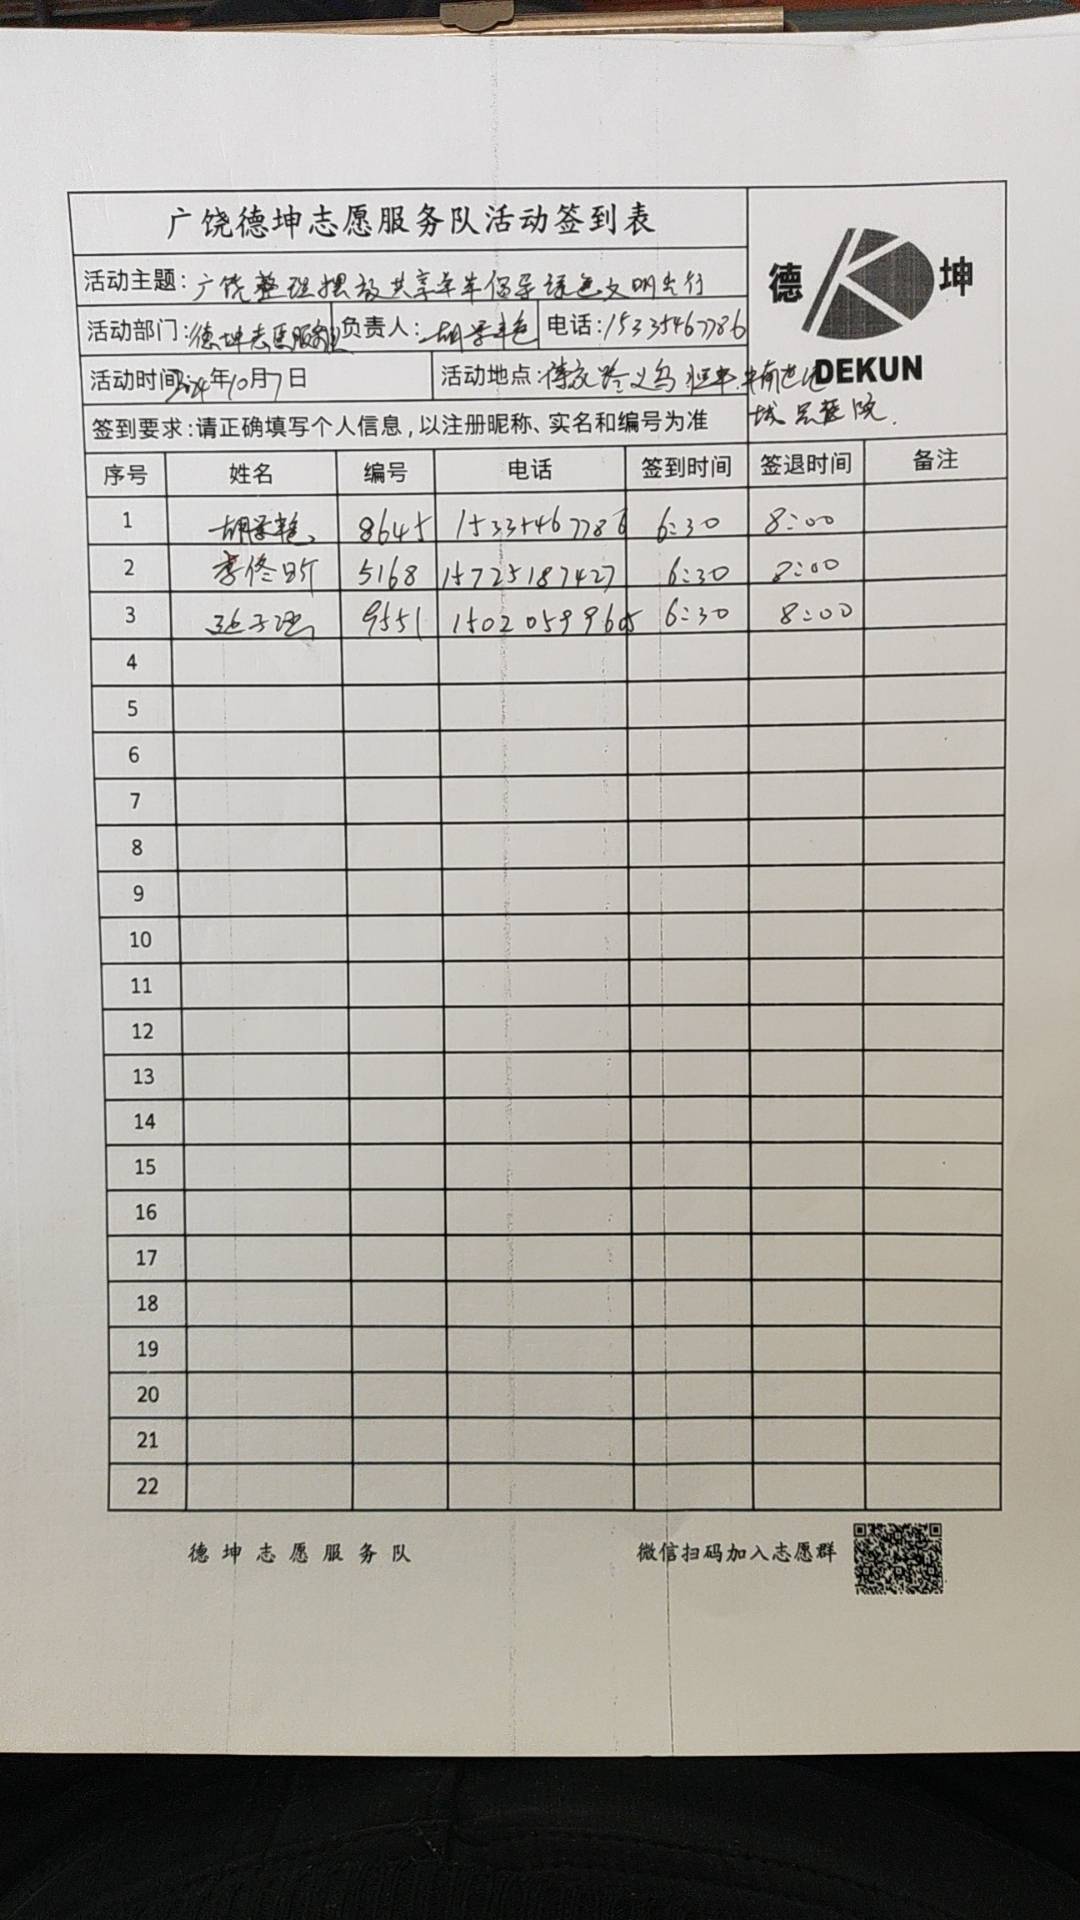 广饶德坤志愿服务队活动签到表
德 坤
DEKUN
活动主题：广饶整理摆放共享单车倡导绿色文明出行
活动部门：德坤志愿服务队 负责人： 电话：15335467786
活动时间 年10月7日 活动地点：
签到要求：请正确填写个人信息，以注册昵称、实名和编号为准
序号 姓名 编号 电话 签到时间 签退时间 备注
1 8645 15335467786 6:30 8:00
2 5168 15725187427 6:30 8:00
3 9551 15020599605 6:30 8:00
4
5
6
7
8
9
10
11
12
13
14
15
16
17
18
19
20
21
22
德坤志愿服务队 微信扫码加入志愿群